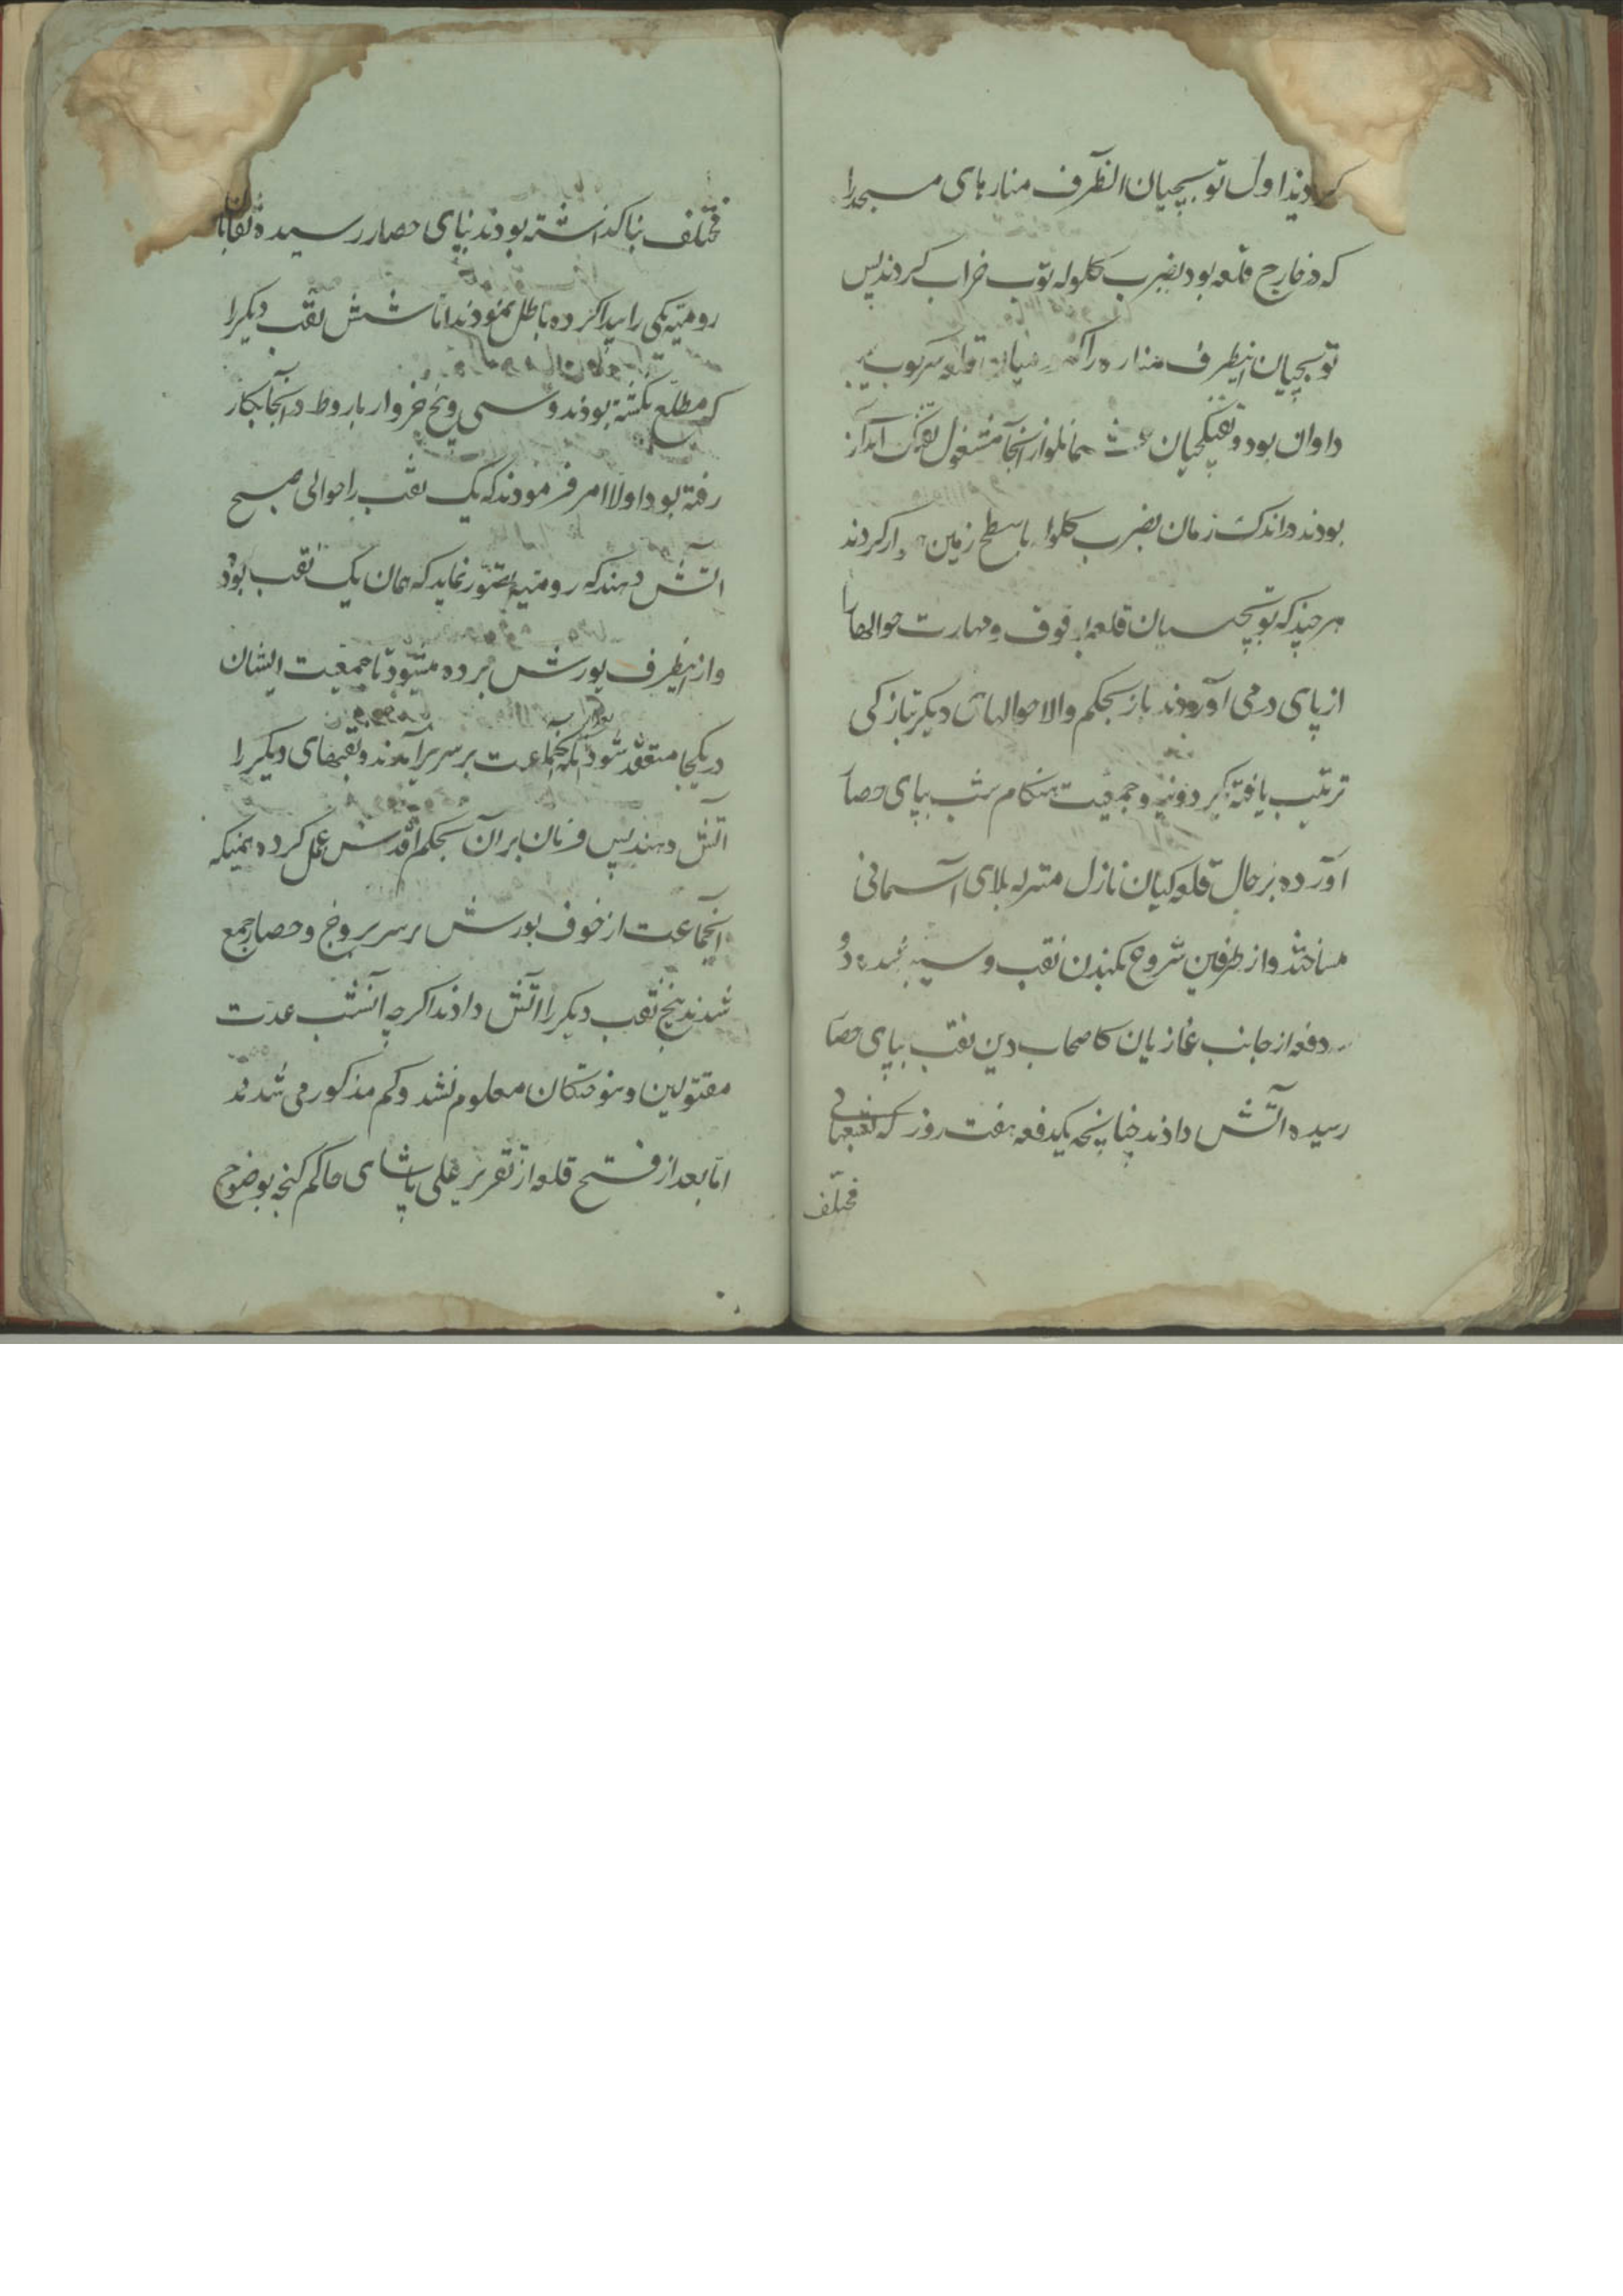 کردید اول توبچیان انطرف منارهای مسجد را
که در خارج قلعه بود بضرب کلوله توب خراب کردند پس
توبچیان اینطرف مناره را که قلعه سرکوب
داوان بود و تفنکچیان از آنجا مشغول تفنک اندازی
بودند در اندک زمان بضرب کلوله با سطح زمین کردند
هر چند که توبچیان قلعه وقوف و مهارت حوالها را
از پای در می آوردند باز بحکم والا حوالهای دیکر بتازکی
ترتیب یافته و جمعیت هنکام شب بپای حصار
آورده بر حال قلعه کیان نازل منزله بلای آسمانی
میساختند و از طرفین شروع بکندن نقب و سیبه
دفعه از جانب غازیان نقب بپای حصار
رسیده آتش دادند چنانچه یکدفعه هفت روز که نقبهای
مختلف
مختلف بنا کذاشته بودند بپای حصار رسیده نقابان
رومیه یکی را پیدا کرده باطل نمودند اما شش نقب دیکر را
که مطلع نکشته بودند و سی و پنج خروار باروط در آنجا بکار
رفته بود اولا امر فرمودند که یک نقب را حوالی صبح
آتش دهند که رومیه تصور نماید که همان یک نقب بود
و از اینطرف یورش برده میشود تا جمعیت ایشان
در یکجا منعقد شود آنکه آنجماعت بر سر برآمدند و نقبهای دیکر را
آتش دهند پس فرمان بران بحکم اقدس عمل کرده همینکه
آنجماعت از خوف یورش بر سر بروج و حصار جمع
شدند پنج نقب دیکر را آتش دادند اکرچه آنشب عدت
مقتولین و سوختکان معلوم نشد و کم مذکور می شدند
اما بعد از فتح قلعه از تقریر علی پاشای حاکم کنجه بوضوح